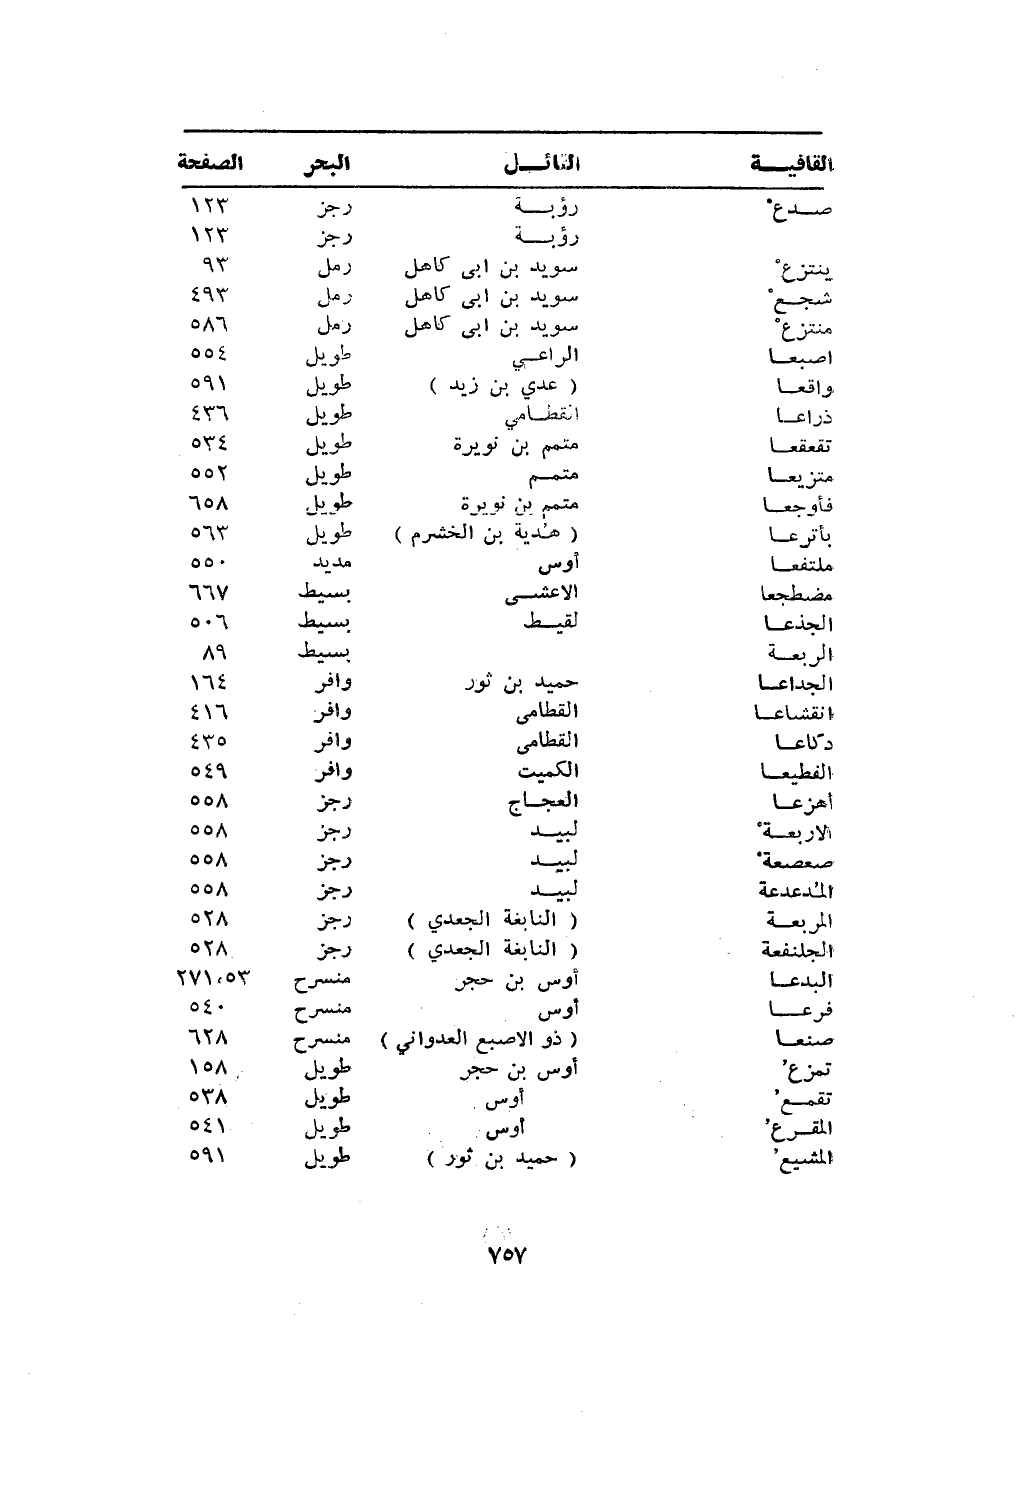 القافيـــة القائــل البحر الصفحة
صــدعْ رؤبــة رجز ١٢٣
رؤبــة رجز ١٢٣
ينتزعْ سويد بن ابى كاهل رمل ٩٣
شجـعْ سويد بن ابى كاهل رمل ٤٩٣
منتزعْ سويد بن ابى كاهل رمل ٥٨٦
اصبعـا الراعـي طويل ٥٥٤
واقعـا ( عدي بن زيد ) طويل ٥٩١
ذراعـا القطـامي طويل ٤٣٦
تقعقعـا متمم بن نويرة طويل ٥٣٤
متزيعـا متمـم طويل ٥٥٢
فأوجعـا متمم بن نويرة طويل ٦٥٨
بأترعـا ( هدبة بن الخشرم ) طويل ٥٦٣
ملتفعـا أوس مديد ٥٥٠
مضطجعا الاعشـى بسيط ٦٦٧
الجذعـا لقيـط بسيط ٥٠٦
الربعـة بسيط ٨٩
الجداعـا حميد بن ثور وافر ١٦٤
انقشاعـا القطامى وافر ٤١٦
دكاعـا القطامى وافر ٤٣٥
الفطيعـا الكميت وافر ٥٤٩
أهزعـا العجـاج رجز ٥٥٨
الاربعـةْ لبيـد رجز ٥٥٨
صعصعةْ لبيـد رجز ٥٥٨
المدعدعة لبيـد رجز ٥٥٨
المربعـة ( النابغة الجعدي ) رجز ٥٢٨
الجلنفعة ( النابغة الجعدي ) رجز ٥٢٨
البدعـا أوس بن حجر منسرح ٢٧١،٥٣
فرعــا أوس منسرح ٥٤٠
صنعـا ( ذو الاصبع العدواني ) منسرح ٦٢٨
تمزعُ أوس بن حجر طويل ١٥٨
تقمـعُ أوس طويل ٥٣٨
المقـرعُ أوس طويل ٥٤١
المشيعُ ( حميد بن ثور ) طويل ٥٩١
٧٥٧